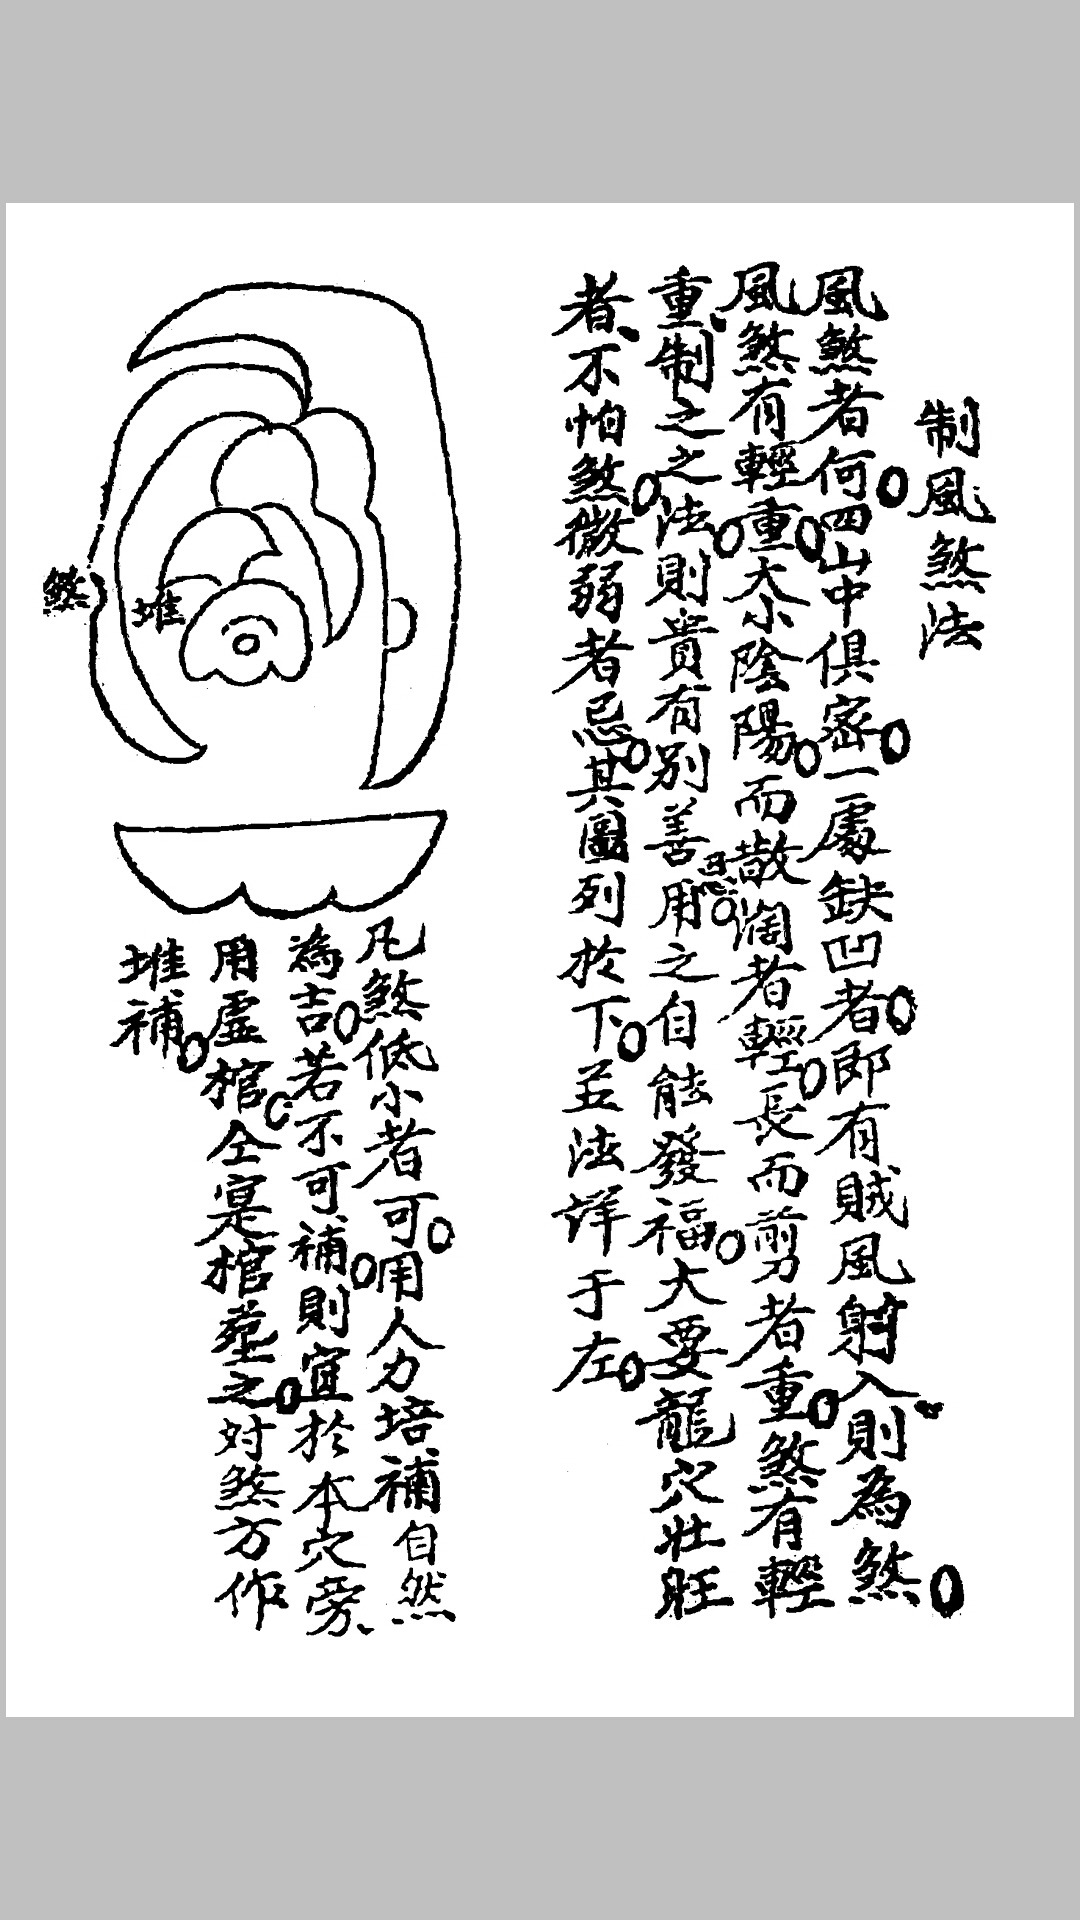 制風煞法
風煞者何四山中俱密一處缺凹者即有賊風射入則為煞
風煞有輕重大小陰陽而散濶者輕長而剪者重煞有輕
重制之之法則貴有別善用之自能發福大要龍穴壯旺
者不怕煞微弱者忌其圖列於下並法詳于左
凡煞低小者可用人力培補自然
為吉若不可補則宜於本穴旁
用虛棺仝寔棺塟之对煞方作
堆補
煞
堆